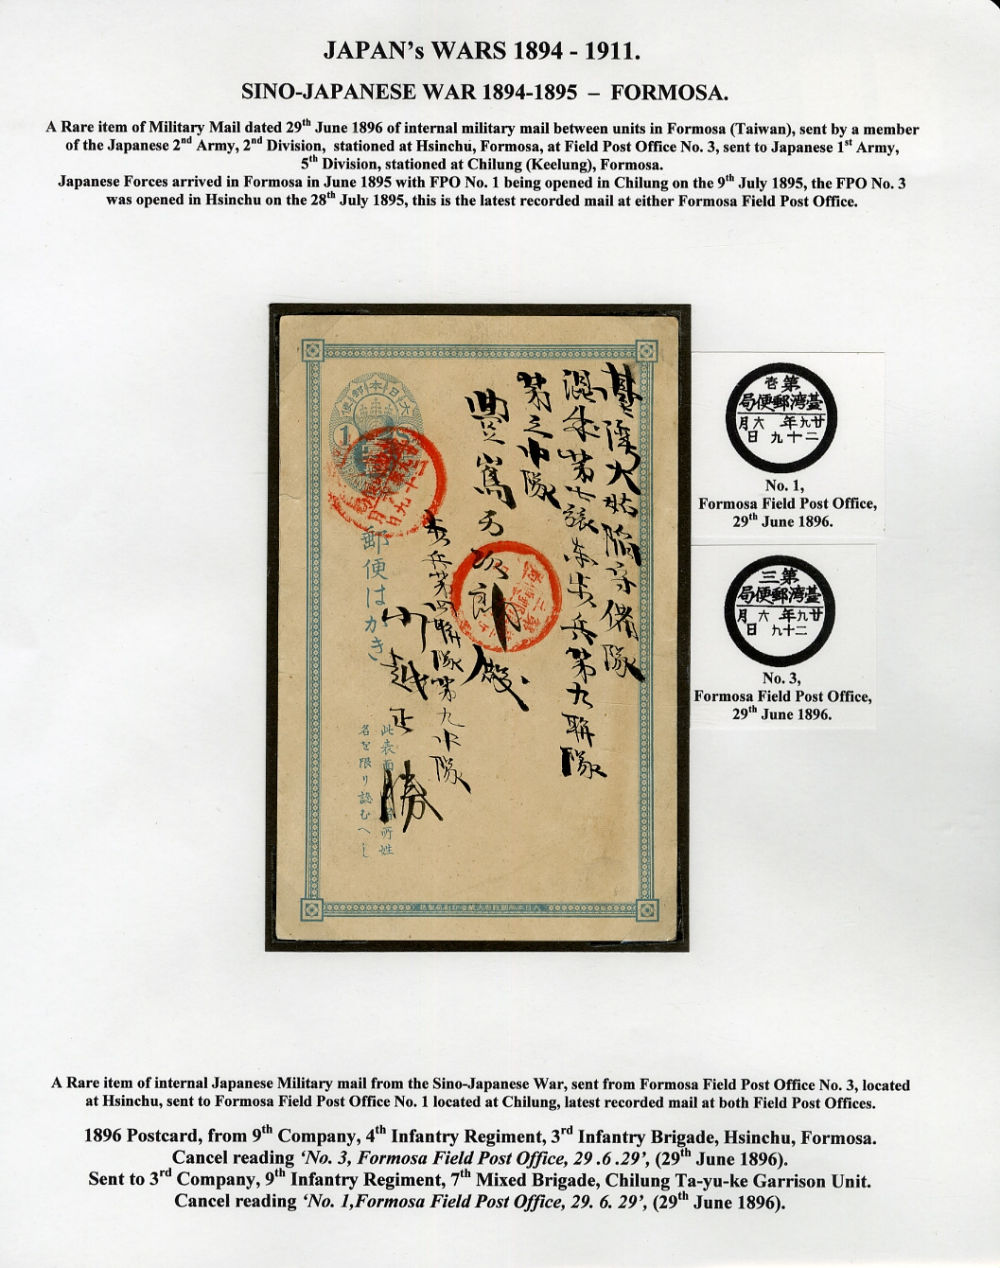 JAPAN's WARS 1894 - 1911.
SINO-JAPANESE WAR 1894-1895 – FORMOSA.
A Rare item of Military Mail dated 29th June 1896 of internal military mail between units in Formosa (Taiwan), sent by a member
of the Japanese 2nd Army, 2nd Division, stationed at Hsinchu, Formosa, at Field Post Office No. 3, sent to Japanese 1st Army,
5th Division, stationed at Chilung (Keelung), Formosa.
Japanese Forces arrived in Formosa in June 1895 with FPO No. 1 being opened in Chilung on the 9th July 1895, the FPO No. 3
was opened in Hsinchu on the 28th July 1895, this is the latest recorded mail at either Formosa Field Post Office.
基隆大
守備隊
混成第七
歩兵第九聯隊
第三中隊
歩兵第四聯隊第九中隊
川越正勝
郵便はがき
名を限り認むへし
第壱
臺湾郵便局
廿九年六月
二十九日
No. 1,
Formosa Field Post Office,
29th June 1896.
第三
臺湾郵便局
廿九年六月
二十九日
No. 3,
Formosa Field Post Office,
29th June 1896.
A Rare item of internal Japanese Military mail from the Sino-Japanese War, sent from Formosa Field Post Office No. 3, located
at Hsinchu, sent to Formosa Field Post Office No. 1 located at Chilung, latest recorded mail at both Field Post Offices.
1896 Postcard, from 9th Company, 4th Infantry Regiment, 3rd Infantry Brigade, Hsinchu, Formosa.
Cancel reading ‘No. 3, Formosa Field Post Office, 29 .6 .29’, (29th June 1896).
Sent to 3rd Company, 9th Infantry Regiment, 7th Mixed Brigade, Chilung Ta-yu-ke Garrison Unit.
Cancel reading ‘No. 1,Formosa Field Post Office, 29. 6. 29’, (29th June 1896).